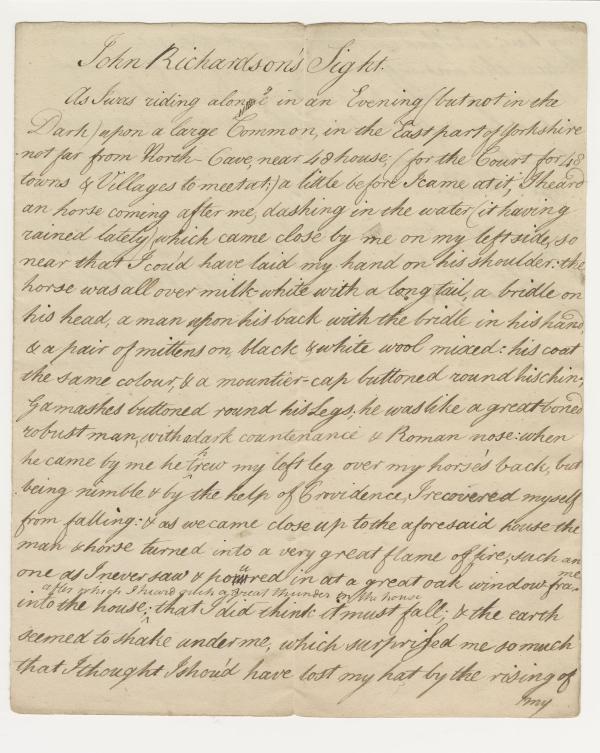 John Richardson's Sight.
As I was riding alone in an Evening (but not in the
Dark) upon a large Common, in the East part of Yorkshire
not far from North-Cave, near 48 house; (for the Court for 48
towns & Villages to meet at;) a little before I came at it, I heard
an horse coming after me, dashing in the water (it having
rained lately) which came close by me on my left side, so
near that I cou'd have laid my hand on his shoulder: the
horse was all over milk-white with a long tail, a bridle on
his head, a man upon his back with the bridle in his hand,
& a pair of mittens on, black & white wool mixed: his coat
the same colour, & a mountier-cap buttoned round his chin,
Gamashes buttoned round his Legs, he was like a great boned
robust man, with a dark countenance & Roman nose: when
he came by me he threw my left leg over my horse's back, but
being nimble & by the help of Providence, I recovered myself
from falling: & as we came close up to the aforesaid house the
man & horse turned into a very great flame of fire; such an
one as I never saw & poured in at a great oak window frame
after which I heard such a great thunder in the house
into the house; that I did think it must fall; & the earth
seemed to shake under me, which surprised me so much
that I thought I shou'd have lost my hat by the rising of
my